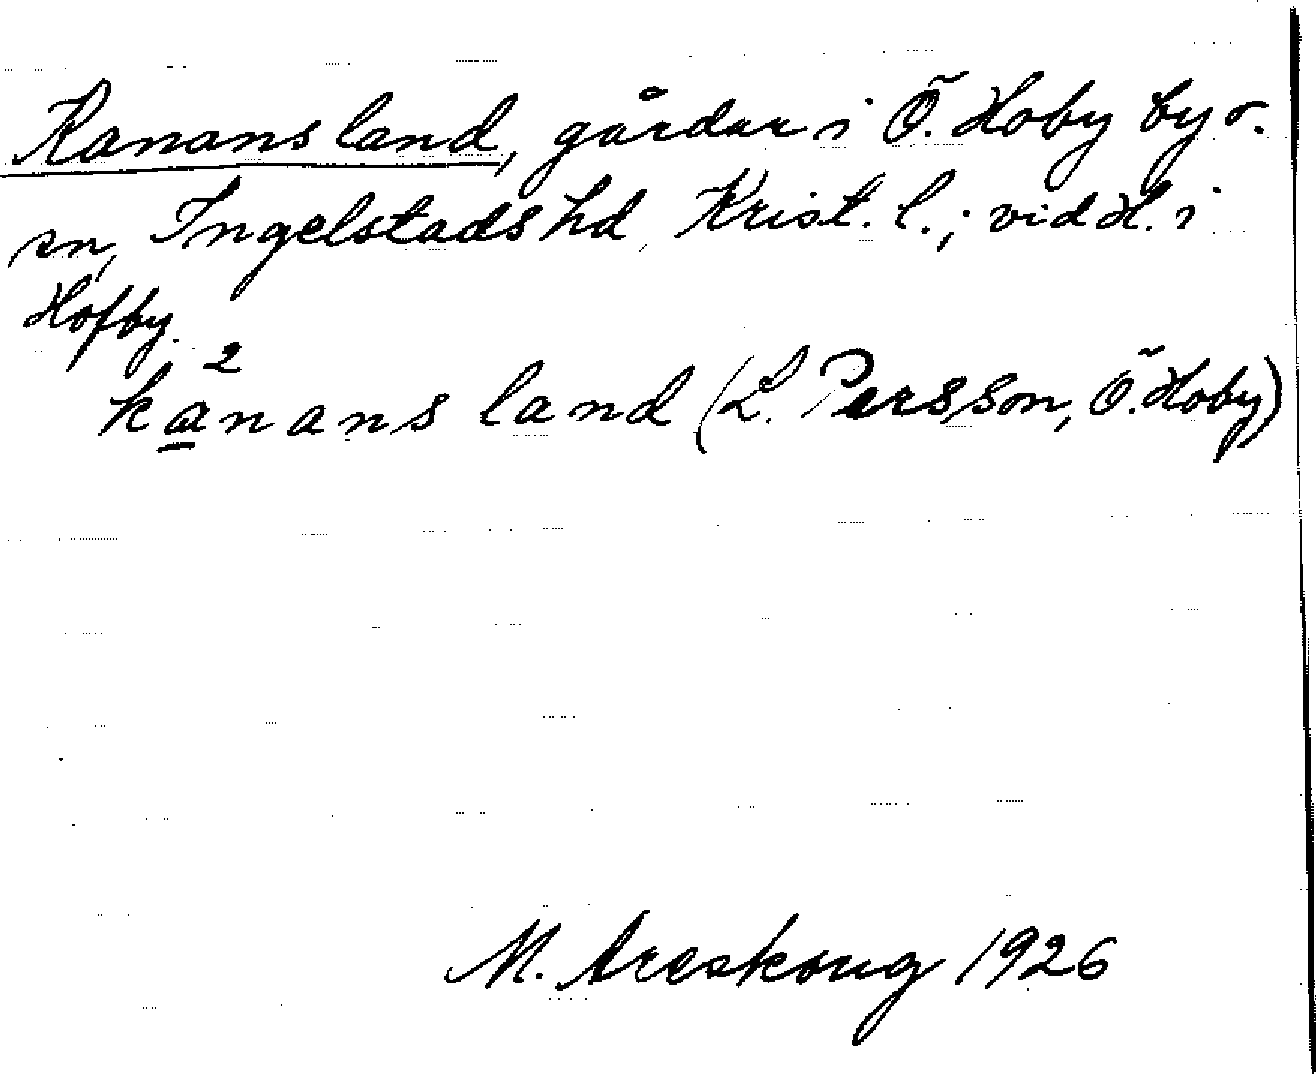 Kanans land, gårdar i Ö. Hoby by o.
sn, Ingelstads hd, Krist. l.; vid d. i
Hofby.
ka²nans land (L. Persson, Ö. Hoby)
M. Areskoug 1926